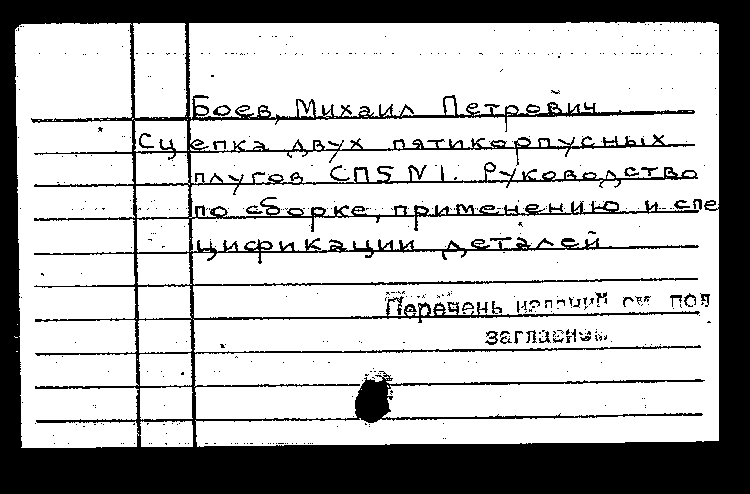 Боев, Михаил Петрович
Сцепка двух пятикорпусных
плугов СП5 №1. Руководство
по сборке, применению и спе
цификации деталей
Перечень изданий см под
заглавием